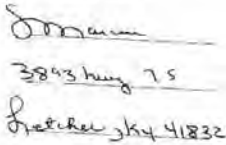 3893 hwy 7 S
Letcher, Ky 41832